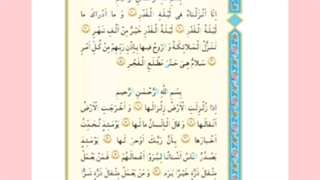 اِنَّا اَنْزَلْنَاهُ فِى لَيْلَةِ الْقَدْرِ وَ مَا اَدْرَاكَ مَا
لَيْلَةُ الْقَدْرِ لَيْلَةُ الْقَدْرِ خَيْرٌ مِنْ اَلْفِ شَهْرٍ
تَنَزَّلُ الْمَلَائِكَةُ وَ الرُّوحُ فِيهَا بِاِذْنِ رَبِّهِمْ مِنْ كُلِّ اَمْرٍ
سَلَامٌ هِىَ حَتَّى مَطْلَعِ الْفَجْرِ
بِسْمِ اللَّهِ الرَّحْمَنِ الرَّحِيمِ
اِذَا زُلْزِلَتِ الْاَرْضُ زِلْزَالَهَا وَ اَخْرَجَتِ الْاَرْضُ
اَثْقَالَهَا وَ قَالَ الْاِنْسَانُ مَا لَهَا يَوْمَئِذٍ تُحَدِّثُ
اَخْبَارَهَا بِاَنَّ رَبَّكَ اَوْحَى لَهَا يَوْمَئِذٍ
يَصْدُرُ النَّاسُ اَشْتَاتًا لِيُرَوْا اَعْمَالَهُمْ فَمَنْ يَعْمَلْ
مِثْقَالَ ذَرَّةٍ خَيْرًا يَرَهُ وَ مَنْ يَعْمَلْ مِثْقَالَ ذَرَّةٍ شَرًّا